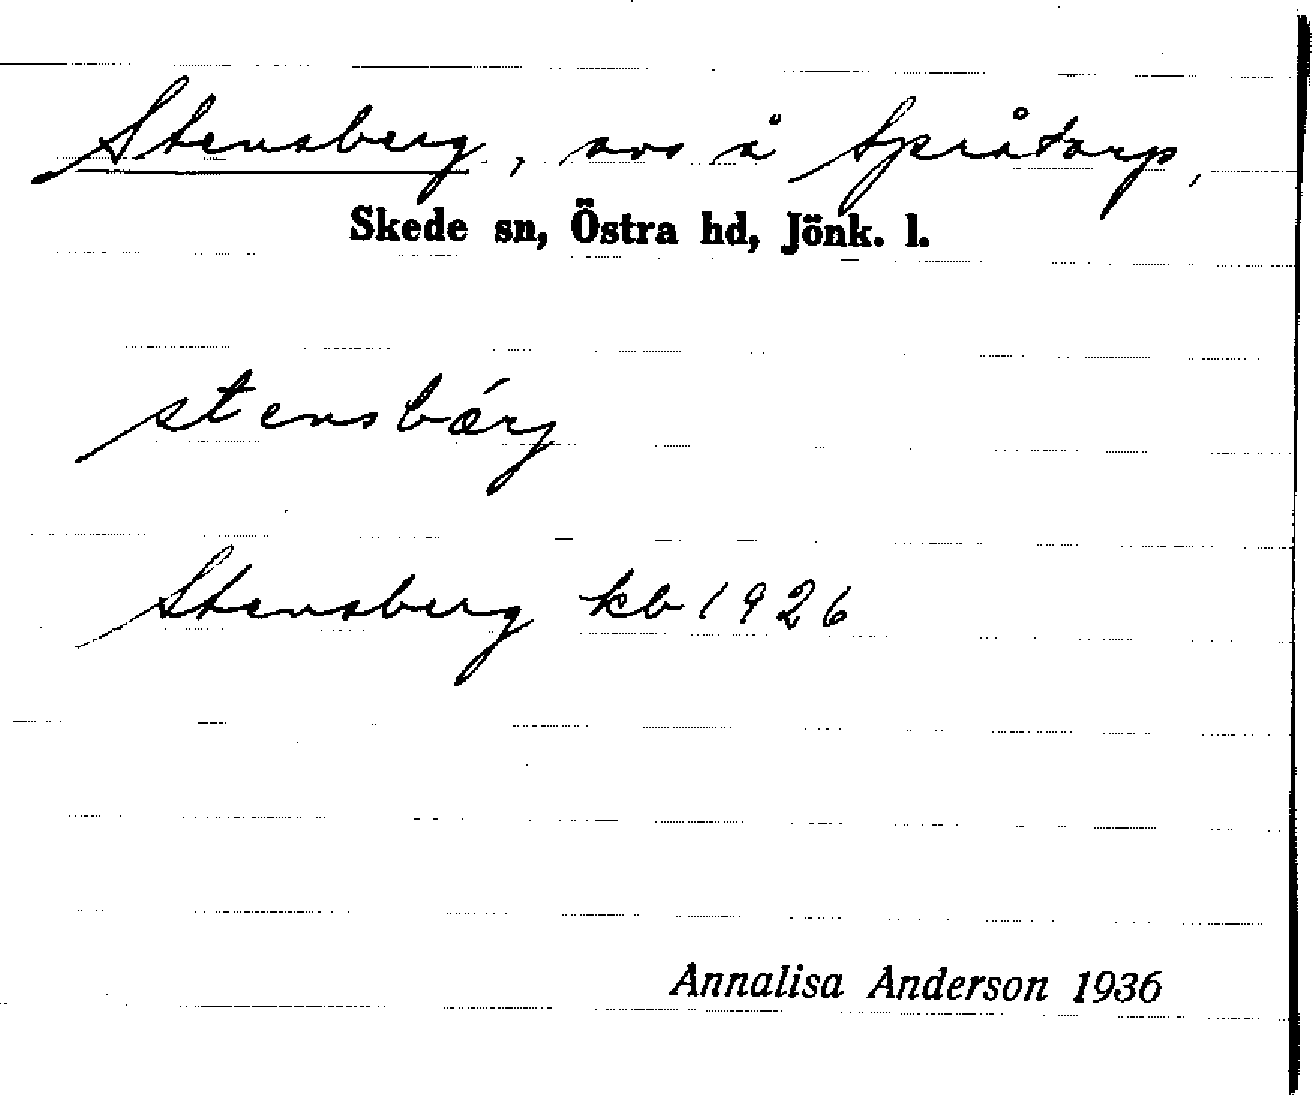 Stensberg, avs å Språtorp,
Skede sn, Östra hd, Jönk. l.
stensbárj
Stensberg kb 1926
Annalisa Anderson 1936